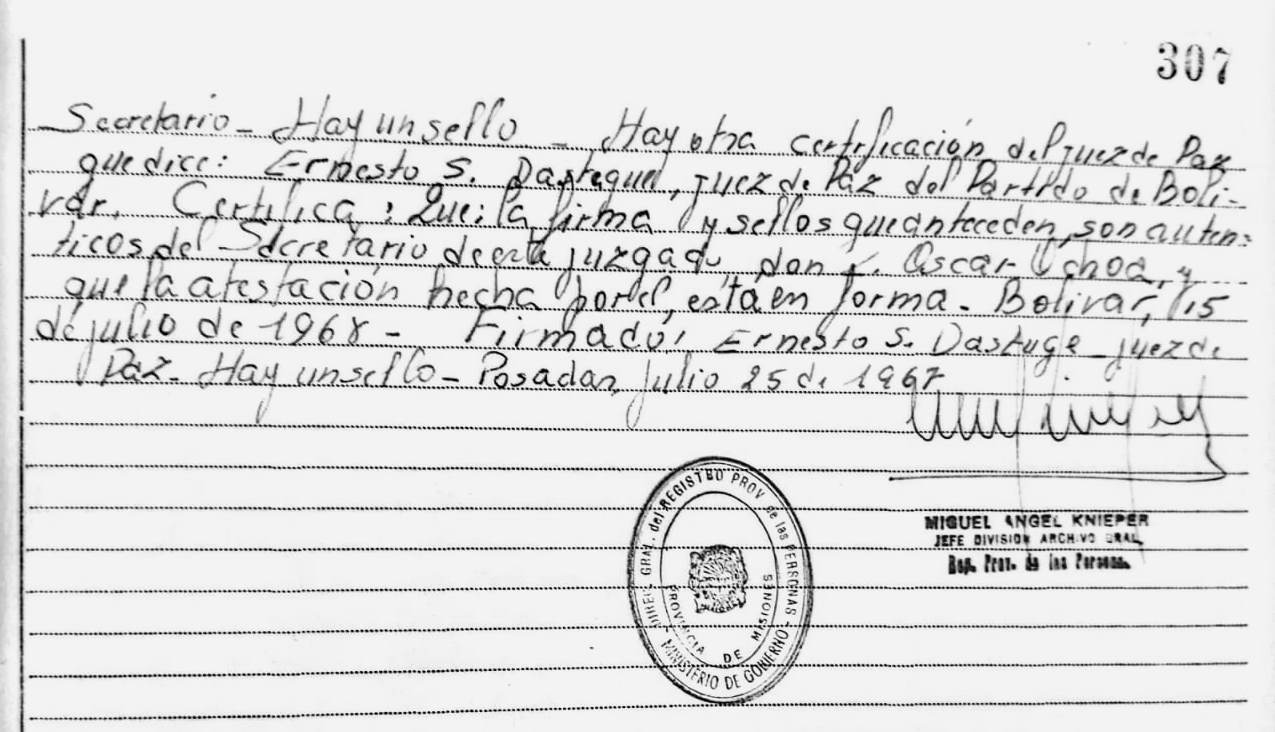 307
Secretario - Hay un sello - Hay otra certificación del juez de Paz
que dice: Ernesto S. Dastugue, juez de Paz del Partido de Boli-
var. Certifica: Que: la firma y sellos que anteceden, son auten-
ticos del Secretario de este juzgado, don Oscar Ochoa, y
que la atestación hecha por el, está en forma - Bolivar, 15
de julio de 1968 - Firmado: Ernesto S. Dastuge - juez de
Paz - Hay un sello - Posadas, julio 25 de 1967
DIREC. GRAL. del REGISTRO PROV. de las PERSONAS
- MINISTERIO DE GOBIERNO -
PROVINCIA DE MISIONES
MIGUEL ANGEL KNIEPER
JEFE DIVISION ARCHIVO GRAL.
Rep. Prov. de las Personas